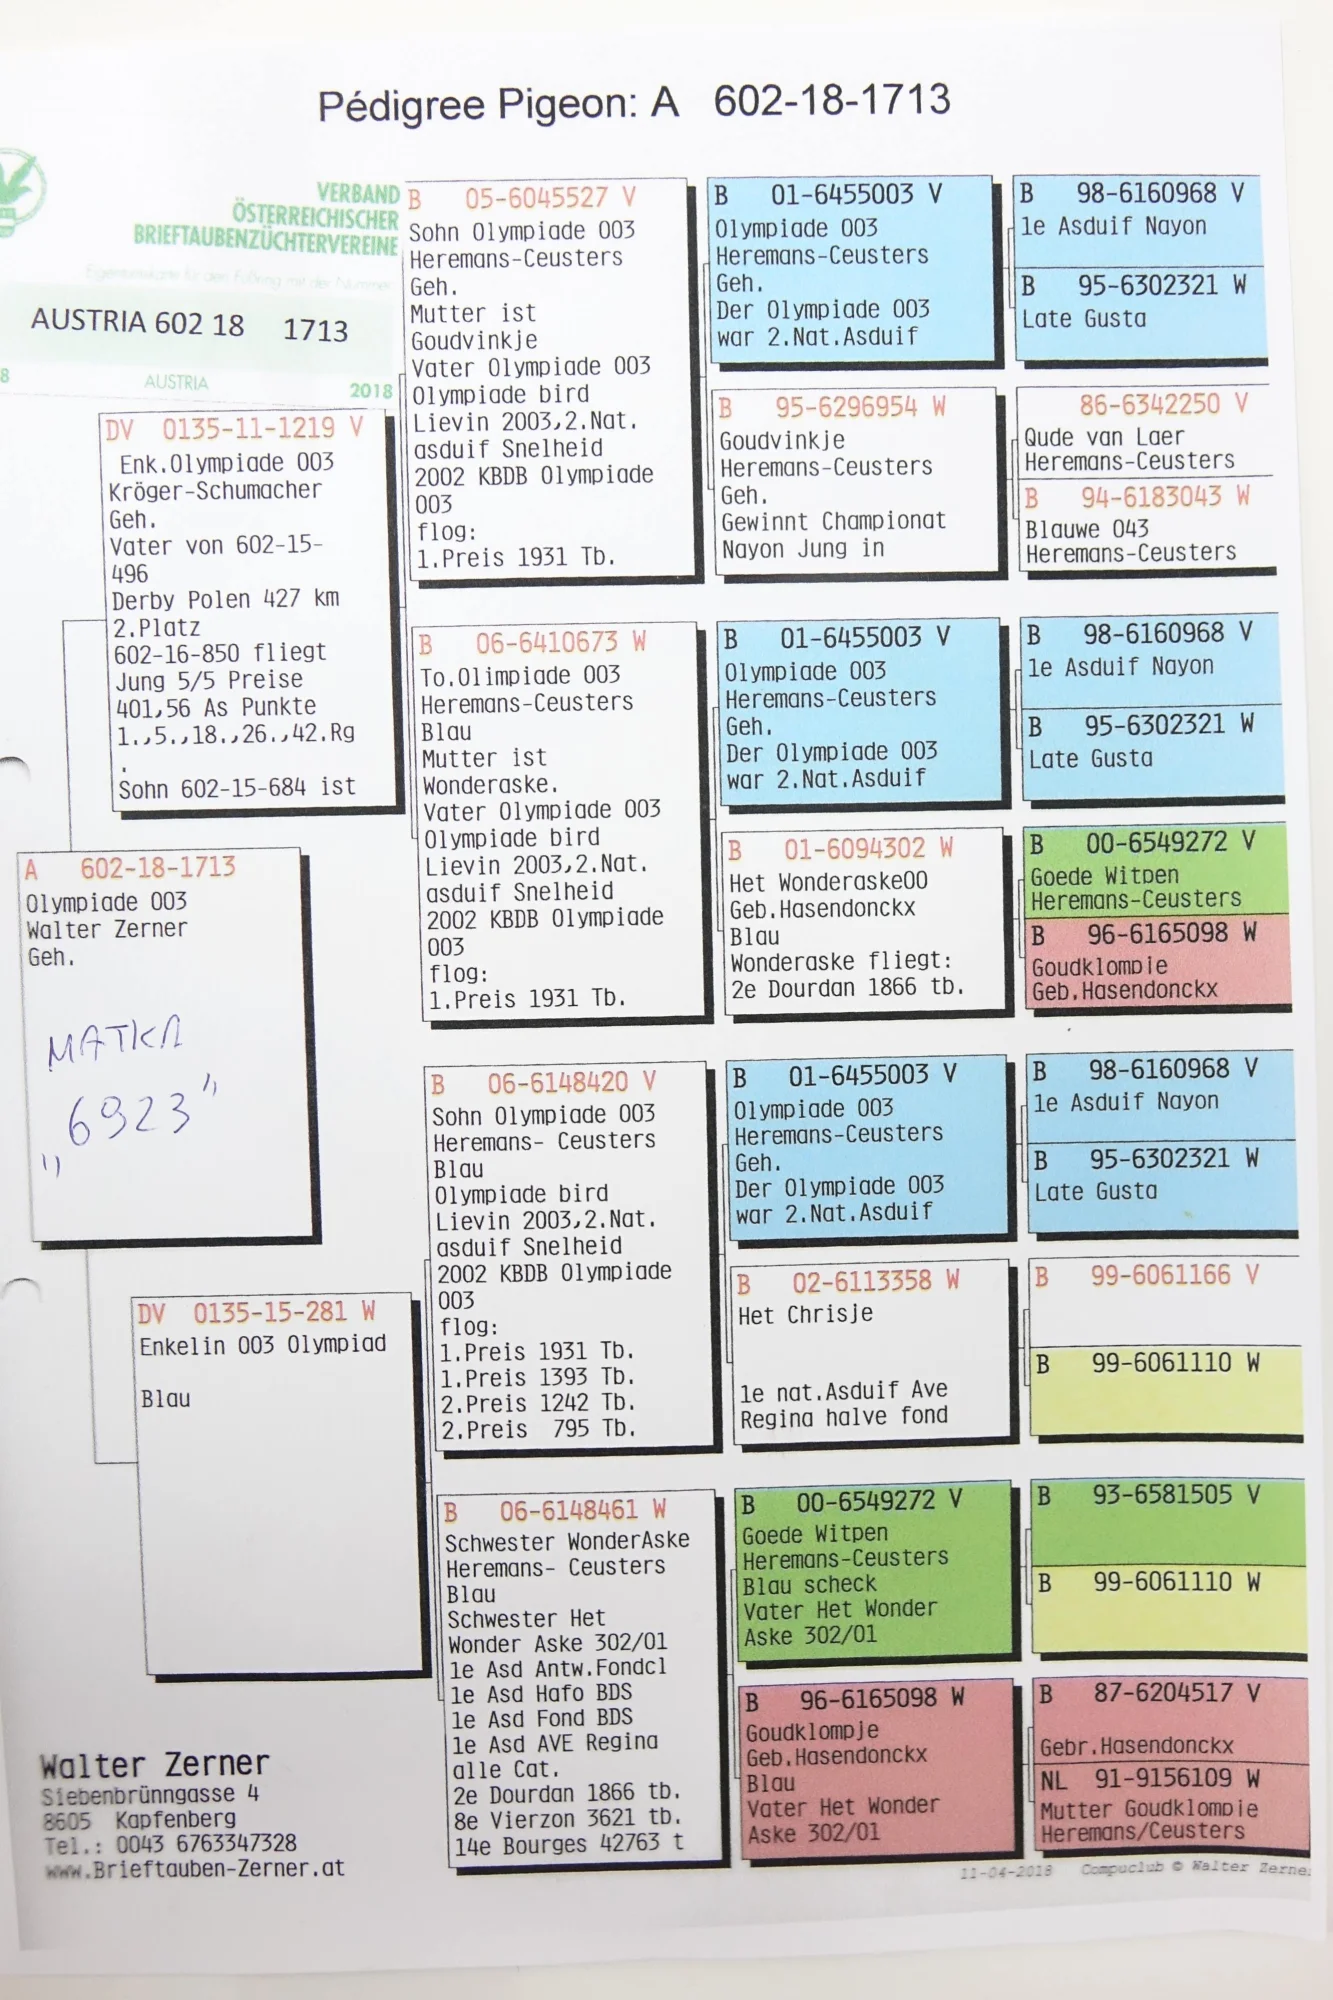 Pédigree Pigeon: A 602-18-1713
VERBAND
ÖSTERREICHISCHER
BRIEFTAUBENZÜCHTERVEREINE
Eigentumskarte für den Fußring mit der Nummer
AUSTRIA 602 18 1713
8 AUSTRIA 2018
DV 0135-11-1219 V
Enk.Olympiade 003
Kröger-Schumacher
Geh.
Vater von 602-15-
496
Derby Polen 427 km
2.Platz
602-16-850 fliegt
Jung 5/5 Preise
401,56 As Punkte
1.,5.,18.,26.,42.Rg
.
Sohn 602-15-684 ist
A 602-18-1713
Olympiade 003
Walter Zerner
Geh.
MATKA
„6923”
DV 0135-15-281 W
Enkelin 003 Olympiad
Blau
Walter Zerner
Siebenbrünngasse 4
8605 Kapfenberg
Tel.: 0043 6763347328
www.Brieftauben-Zerner.at
B 05-6045527 V
Sohn Olympiade 003
Heremans-Ceusters
Geh.
Mutter ist
Goudvinkje
Vater Olympiade 003
Olympiade bird
Lievin 2003,2.Nat.
asduif Snelheid
2002 KBDB Olympiade
003
flog:
1.Preis 1931 Tb.
B 06-6410673 W
To.Olimpiade 003
Heremans-Ceusters
Blau
Mutter ist
Wonderaske.
Vater Olympiade 003
Olympiade bird
Lievin 2003,2.Nat.
asduif Snelheid
2002 KBDB Olympiade
003
flog:
1.Preis 1931 Tb.
B 06-6148420 V
Sohn Olympiade 003
Heremans- Ceusters
Blau
Olympiade bird
Lievin 2003,2.Nat.
asduif Snelheid
2002 KBDB Olympiade
003
flog:
1.Preis 1931 Tb.
1.Preis 1393 Tb.
2.Preis 1242 Tb.
2.Preis 795 Tb.
B 06-6148461 W
Schwester WonderAske
Heremans- Ceusters
Blau
Schwester Het
Wonder Aske 302/01
1e Asd Antw.Fondcl
1e Asd Hafo BDS
1e Asd Fond BDS
1e Asd AVE Regina
alle Cat.
2e Dourdan 1866 tb.
8e Vierzon 3621 tb.
14e Bourges 42763 t
B 01-6455003 V
Olympiade 003
Heremans-Ceusters
Geh.
Der Olympiade 003
war 2.Nat.Asduif
B 95-6296954 W
Goudvinkje
Heremans-Ceusters
Geh.
Gewinnt Championat
Nayon Jung in
B 01-6455003 V
Olympiade 003
Heremans-Ceusters
Geh.
Der Olympiade 003
war 2.Nat.Asduif
B 01-6094302 W
Het Wonderaske00
Geb.Hasendonckx
Blau
Wonderaske fliegt:
2e Dourdan 1866 tb.
B 01-6455003 V
Olympiade 003
Heremans-Ceusters
Geh.
Der Olympiade 003
war 2.Nat.Asduif
B 02-6113358 W
Het Chrisje
1e nat.Asduif Ave
Regina halve fond
B 00-6549272 V
Goede Witpen
Heremans-Ceusters
Blau scheck
Vater Het Wonder
Aske 302/01
B 96-6165098 W
Goudklompje
Geb.Hasendonckx
Blau
Vater Het Wonder
Aske 302/01
B 98-6160968 V
1e Asduif Nayon
B 95-6302321 W
Late Gusta
86-6342250 V
Qude van Laer
Heremans-Ceusters
B 94-6183043 W
Blauwe 043
Heremans-Ceusters
B 98-6160968 V
1e Asduif Nayon
B 95-6302321 W
Late Gusta
B 00-6549272 V
Goede Witpen
Heremans-Ceusters
B 96-6165098 W
Goudklompje
Geb.Hasendonckx
B 98-6160968 V
1e Asduif Nayon
B 95-6302321 W
Late Gusta
B 99-6061166 V
B 99-6061110 W
B 93-6581505 V
B 99-6061110 W
B 87-6204517 V
Gebr.Hasendonckx
NL 91-9156109 W
Mutter Goudklompje
Heremans/Ceusters
11-04-2018 Compuclub © Walter Zerne